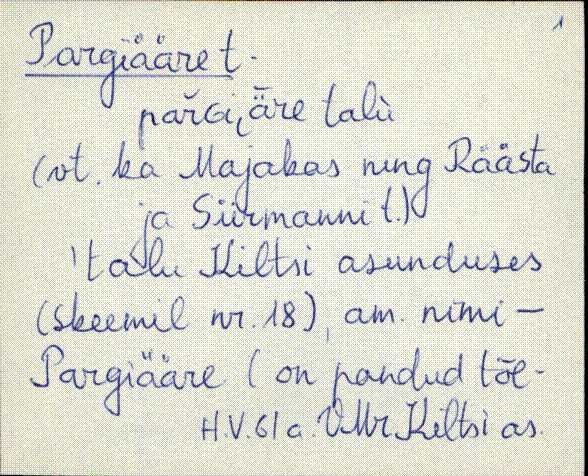 1
Pargiääre t.
pařGi‿ä̆re talù
(vt. ka Majakas ning Räästa
ja Siirmanni t.)
'talu Kiltsi asunduses
(skeemil nr. 18), am. nimi —
Pargiääre (on pandud tõe-
H.V. 61 a. VMr Kiltsi as.